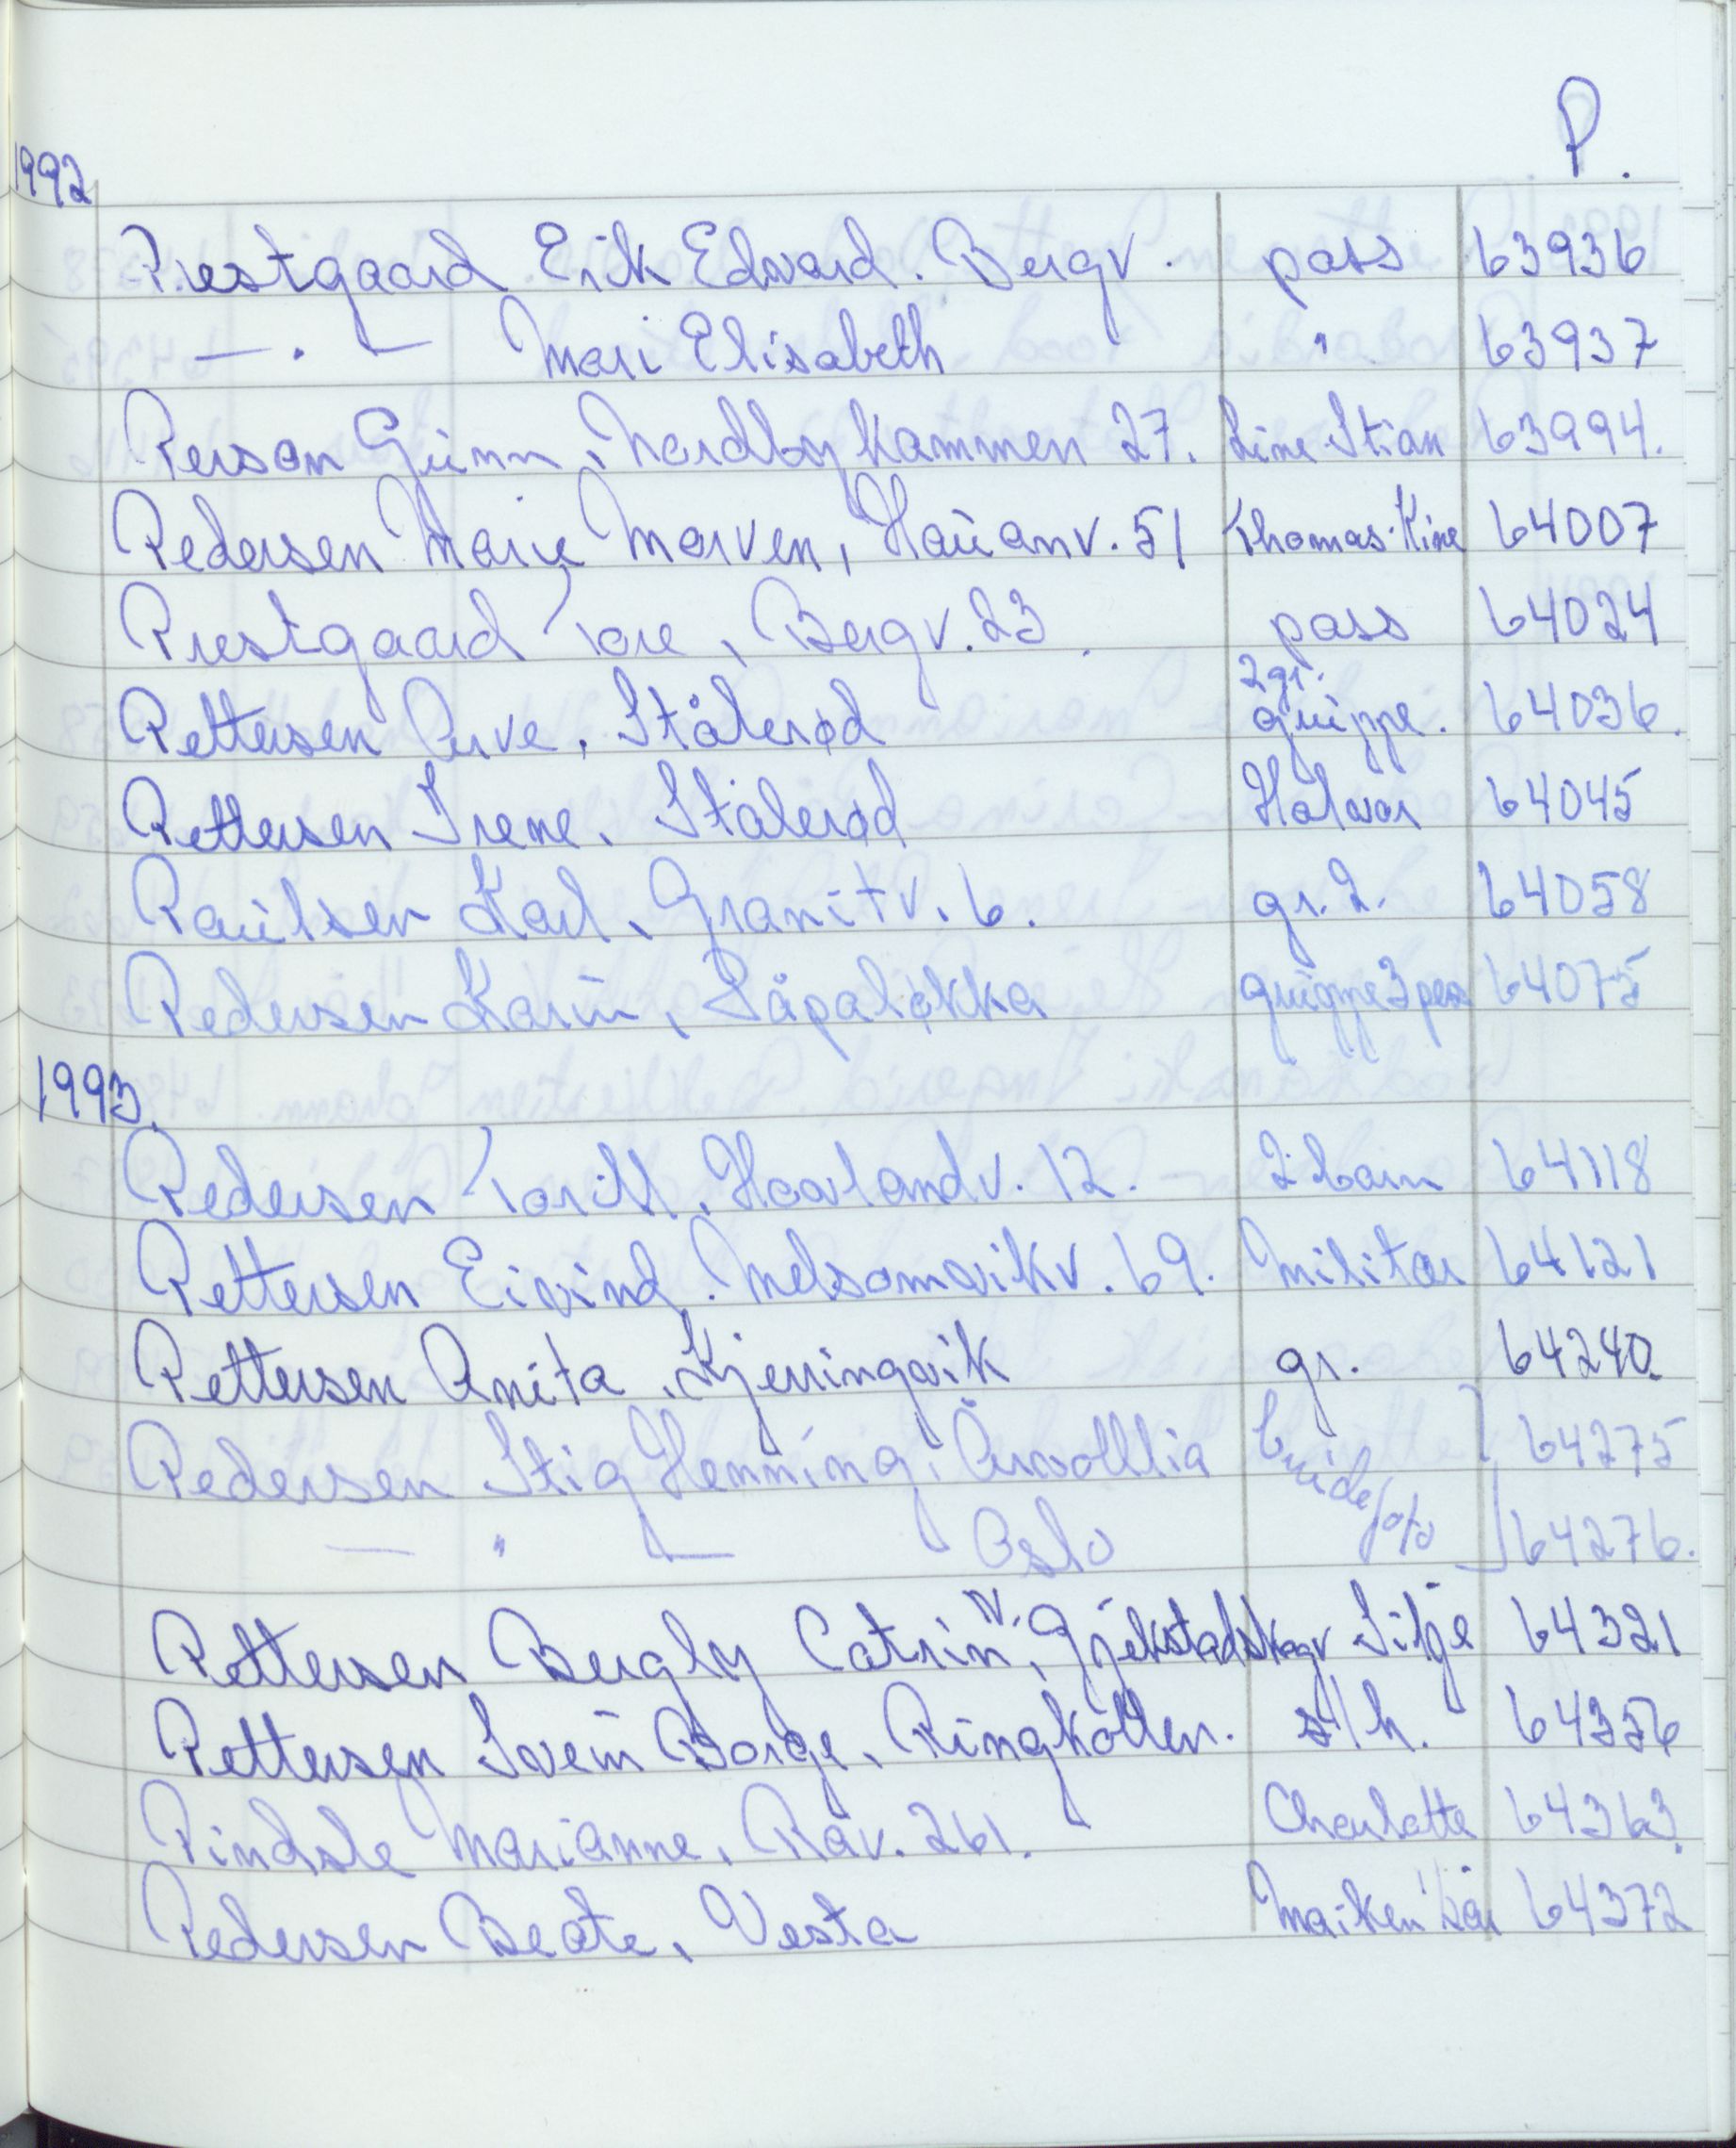 P.
1992
Prestgaard Erik Edward. Bergv. pass 63936
— " — Mari Elisabeth " 63937
Person Gunn, Nordbykammen 27. Line Stian 63994.
Pedersen Marie Marven, Hauanv. 51 Thomas-Kine 64007
Prestgaard Tore, Bergv. 23. pass 64024
Pettersen Arve, Stålerød 2 gr. gruppe. 64036.
Pettersen Irene, Stålerød Halvar 64045
Paulsen Karl, Granitv. 6. gr. 2. 64058
Pedersen Karin, Såpaløkka gruppe 3 pers 64075
1993.
Pedersen Torill, Haavlandv. 12. 2 barn 64118
Pettersen Eivind. Melsomvikv. 69. Militær 64121
Pettersen Anita, Kjerringvik gr. 64240.
Pedersen Stig Henning, Årvolllia brudefoto 64275
— " — Oslo 64276.
Pettersen Bergly Catrin N., Gjekstadskogv Silje 64321
Pettersen Svein Børge, Ringkollen. s/h. 64356
Pindsle Marianne, Råv. 261. Charlotte 64363.
Pedersen Beate, Vesta Maiken 64372